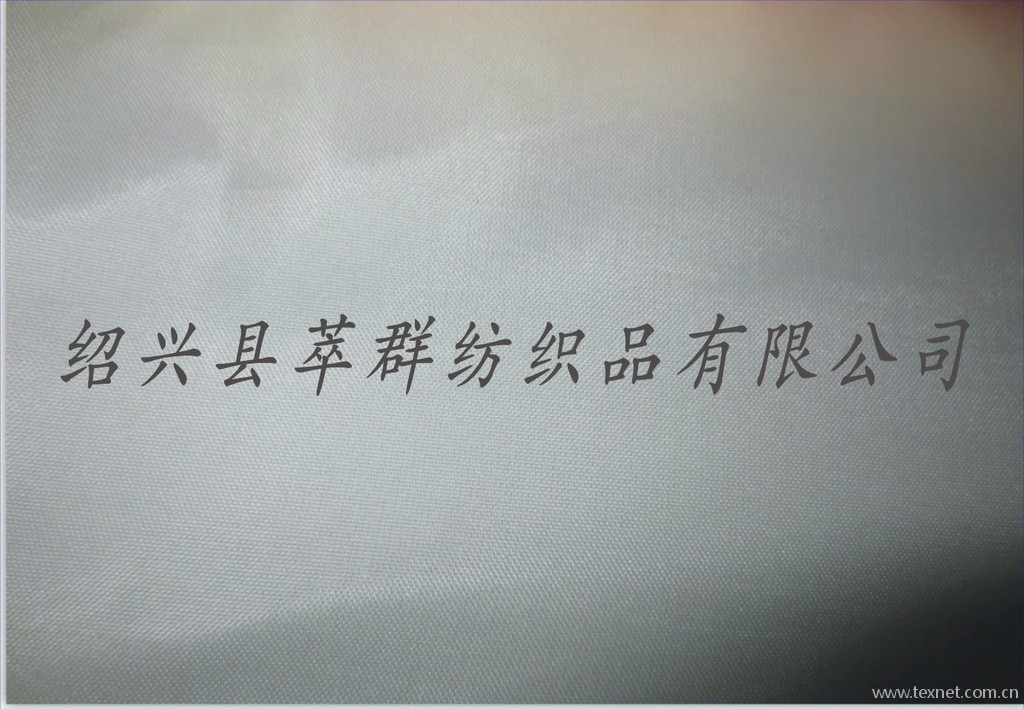 绍兴县萃群纺织品有限公司
www.texnet.com.cn